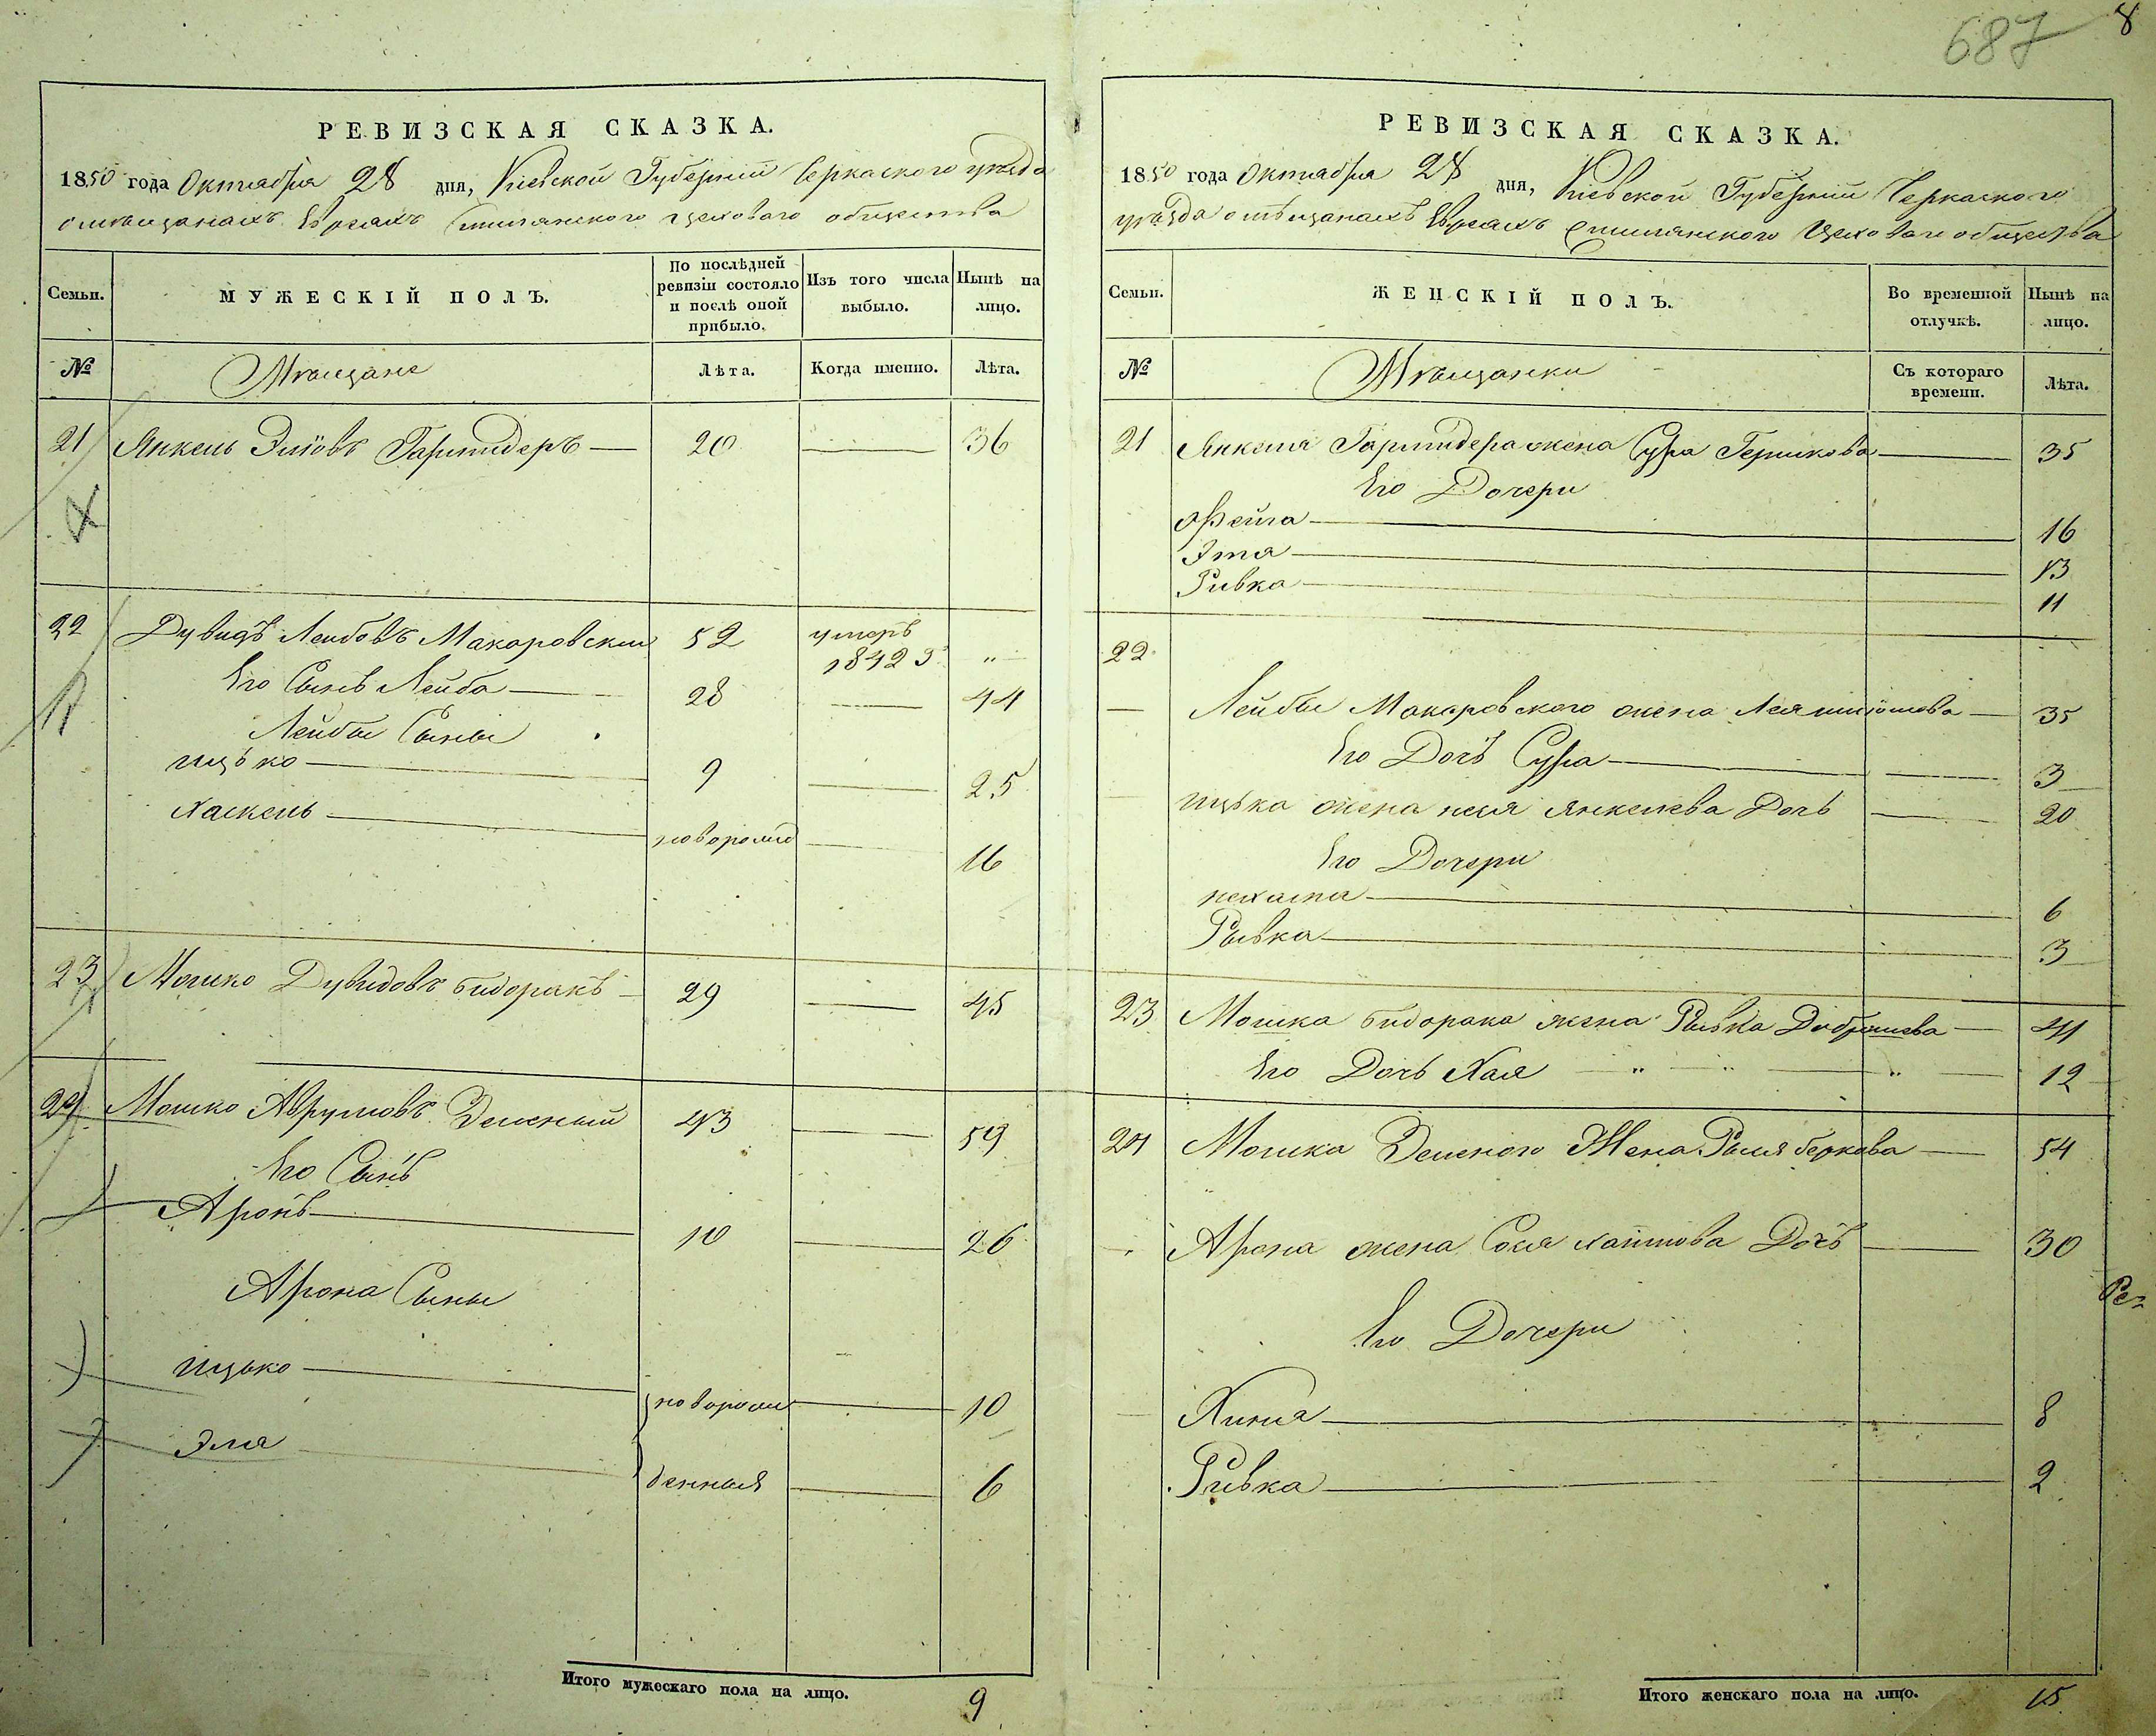 687 8
РЕВИЗСКАЯ СКАЗКА.
1850 года Октября 28 дня, Киевской Губернии Черкаского уезда
о мещанахъ Евреахъ Смилянского цеховаго общества
Семьи.
МУЖЕСКІЙ ПОЛЪ.
По послѣдней
ревизіи состояло
и послѣ оной
прибыло.
Изъ того числа
выбыло.
Нынѣ на
лицо.
№
Мещане
Лѣта.
Когда именно.
Лѣта.
21 Янкель Элiовъ 20 36
22 Дувидъ Леибовъ Макаровски 52 умеръ
1842 г. "
Его Сынъ Лейба 28 44
Лейбы Сыны
Ицько 9 25
Хаскель новорожд 16
23 Мошко Дувидовъ Бидоракъ 29 45
24 Мошко Аврумовъ 43 59
Его Сынъ
Аронъ 10 26
Арона Сыны
Ицько новорож 10
Эля денныя 6
Итого мужескаго пола на лицо. 9
РЕВИЗСКАЯ СКАЗКА.
1850 года Октября 28 дня, Киевской Губернии Черкаского
уезда о мещанахъ Евреахъ Смилянского Цеховаго общества
Семьи.
ЖЕНСКІЙ ПОЛЪ.
Во временной
отлучкѣ.
Нынѣ на
лицо.
№
Мещанки
Съ котораго
времени.
Лѣта.
21 Янкеля жена Сура Гершкова 35
Его Дочери
Фейга 16
Этя 13
Ривка 11
22
Лейбы Макаровского жена Лея 35
Его Дочь Сура 3
Ицька жена Неля Янкелева Дочь 20
Его Дочери
Нехама 6
Рывка 3
23 Мошка Бидорака жена Рывка 41
Его Дочь Хая " " " 12
24 Мошка Жена Рыся Беркова 54
Арона жена Сося Хаимова Дочь 30
Его Дочери
Хиня 8
Ривка 2
Итого женскаго пола на лицо. 15